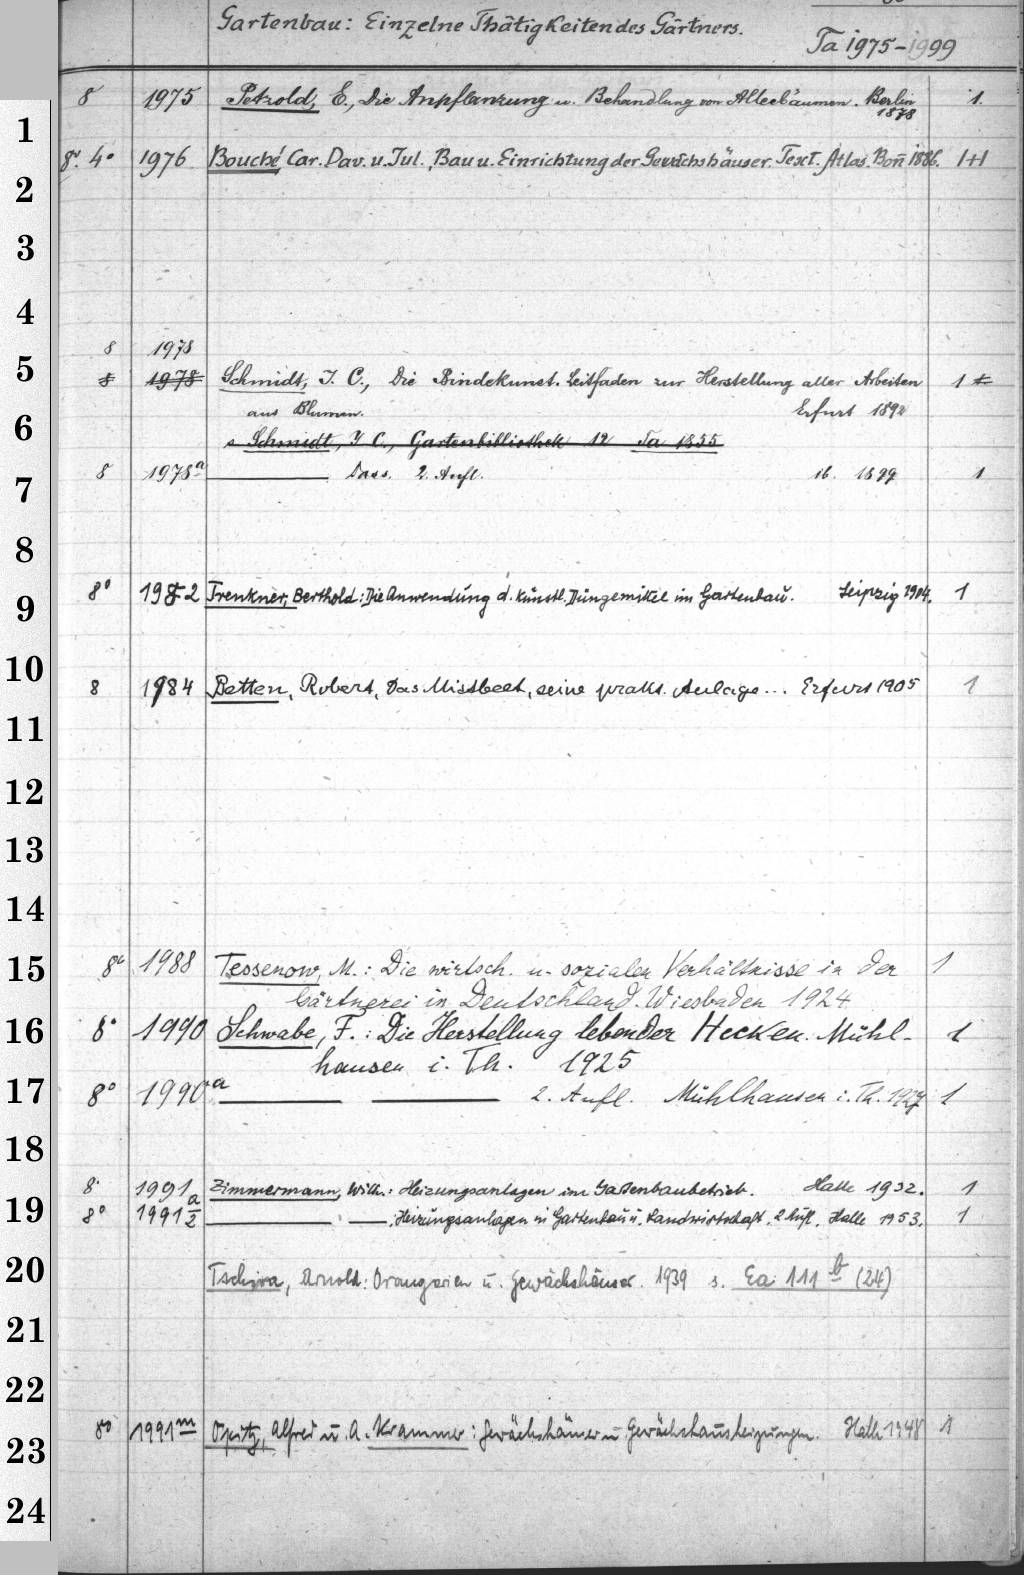 Gartenbau: Einzelne Thätigkeiten des Gärtners.
Ta 1975-1999
8 1975 Petzold, E., Die Anpflanzung u. Behandlung von Alleebäumen. Berlin 1. 
1878
1
8°. 4° 1976 Bouché, Car. Dav. u. Jul., Bau u. Einrichtung der Gewächshäuser. Text. Atlas. Bonn 1886. 1+1
2
3
4
8 1978
5
8 1978 Schmidt, J. C., Die Bindekunst. Leitfaden zur Herstellung aller Arbeiten 1
aus Blumen. Erfurt 1892
6
s Schmidt, J C., Gartenbibliothek 12 Ta 1855
8 1978a Dass. 2. Aufl. ib. 1899 1
7
8
8° 1982 Trenkner, Berthold: Die Anwendung d. künstl. Düngemittel im Gartenbau. Leipzig 1904. 1
9
10
8 1984 Betten, Robert, Das Mistbeet, seine prakt. Anlage... Erfurt 1905 1
11
12
13
14
15
8° 1988 Tessenow, M.: Die wirtsch. u. sozialen Verhältnisse in der 1
Gärtnerei in Deutschland. Wiesbaden 1924
16
8° 1990 Schwabe, F.: Die Herstellung lebender Hecken. Mühl- 1
hausen i. Th. 1925
17
8° 1990a 2. Aufl. Mühlhausen i. Th. 1927 1
18
8° 1991 Zimmermann, Wilh.: Heizungsanlagen im Gartenbaubetrieb. Halle 1932. 1
19
8° 1991 a/2 : Heizungsanlagen in Gartenbau u. Landwirtschaft. 2. Aufl. Halle 1953. 1
20
Tschira, Arnold: Orangerien u. Gewächshäuser. 1939 s. Ea 111 b (24)
21
22
8° 1991m Opitz, Alfred u. A. Krammer: Gewächshäuser u Gewächshausheizungen. Halle 1948 1
23
24